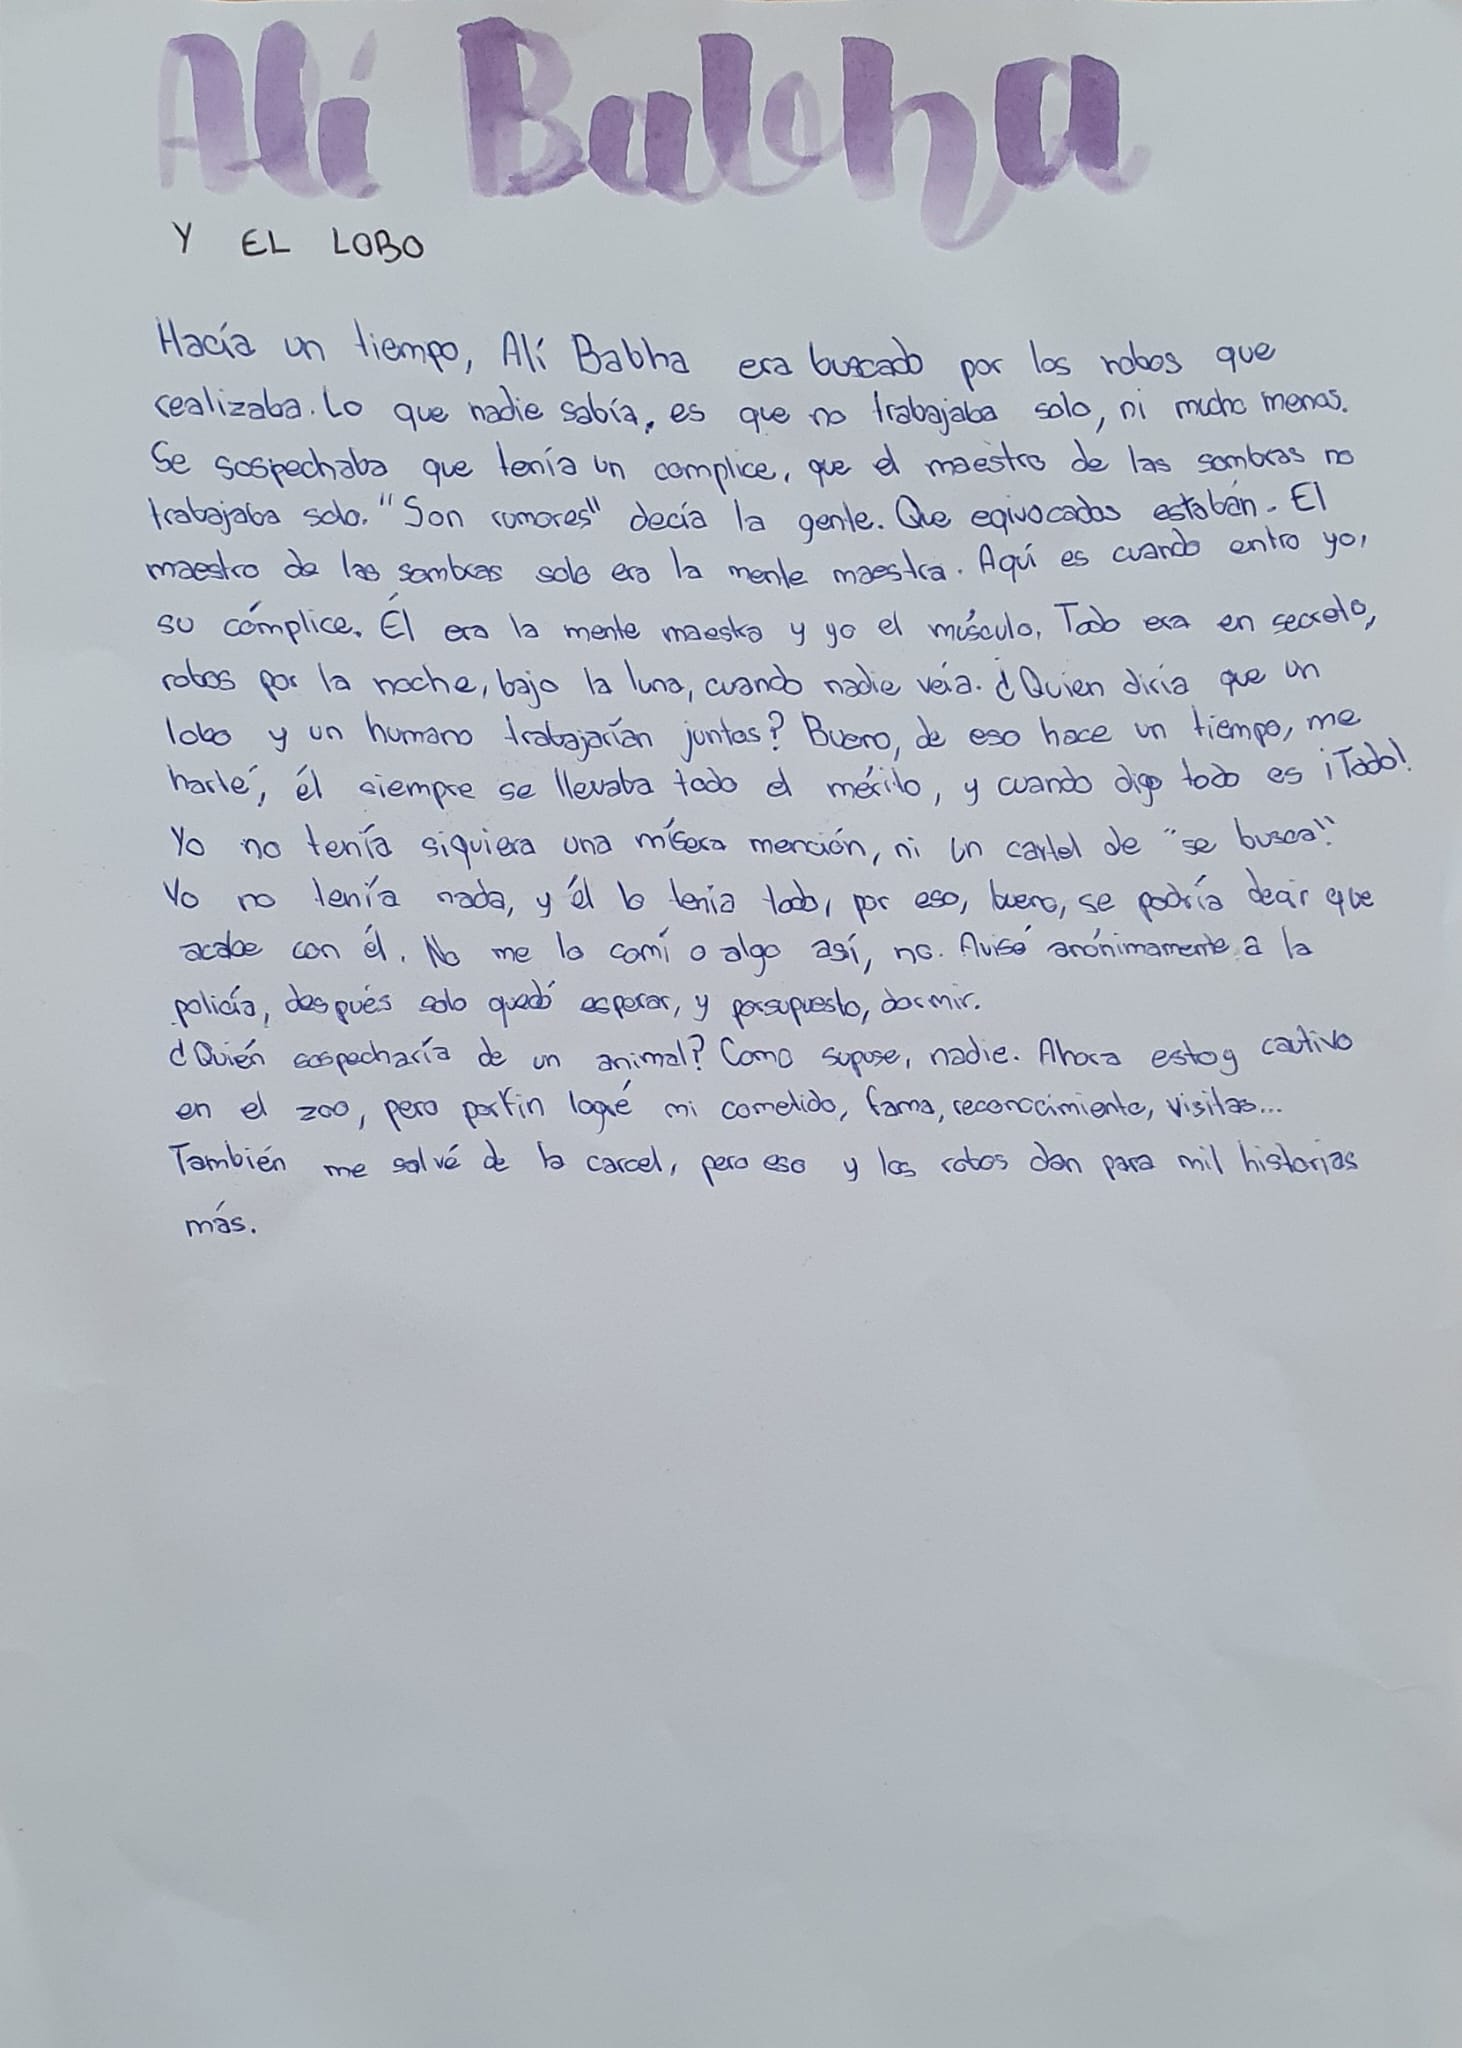 Alí Babha
Y EL LOBO
Hacía un tiempo, Alí Babha era buscado por los robos que
realizaba. Lo que nadie sabía, es que no trabajaba solo, ni mucho menos.
Se sospechaba que tenía un complice, que el maestro de las sombras no
trabajaba solo. "Son rumores" decía la gente. Que eqivocados estabán. El
maestro de las sombras solo era la mente maestra. Aquí es cuando entro yo,
su cómplice. Él era la mente maestra y yo el músculo. Todo era en secreto,
robos por la noche, bajo la luna, cuando nadie veía. ¿Quien diría que un
lobo y un humano trabajarían juntos? Bueno, de eso hace un tiempo, me
harté, él siempre se llevaba todo el mérito, y cuando digo todo es ¡Todo!
Yo no tenía siquiera una mísera mención, ni un cartel de "se busca".
Yo no tenía nada, y él lo tenia todo, por eso, bueno, se podría decir que
acabe con él. No me lo comí o algo así, no. Avisé anónimamente a la
policía, después solo quedó esperar, y porsupuesto, dormir.
¿Quién sospecharía de un animal? Como supuse, nadie. Ahora estoy cautivo
en el zoo, pero porfin logré mi cometido, fama, reconocimiento, visitas...
También me salvé de la carcel, pero eso y los robos dan para mil historias
más.